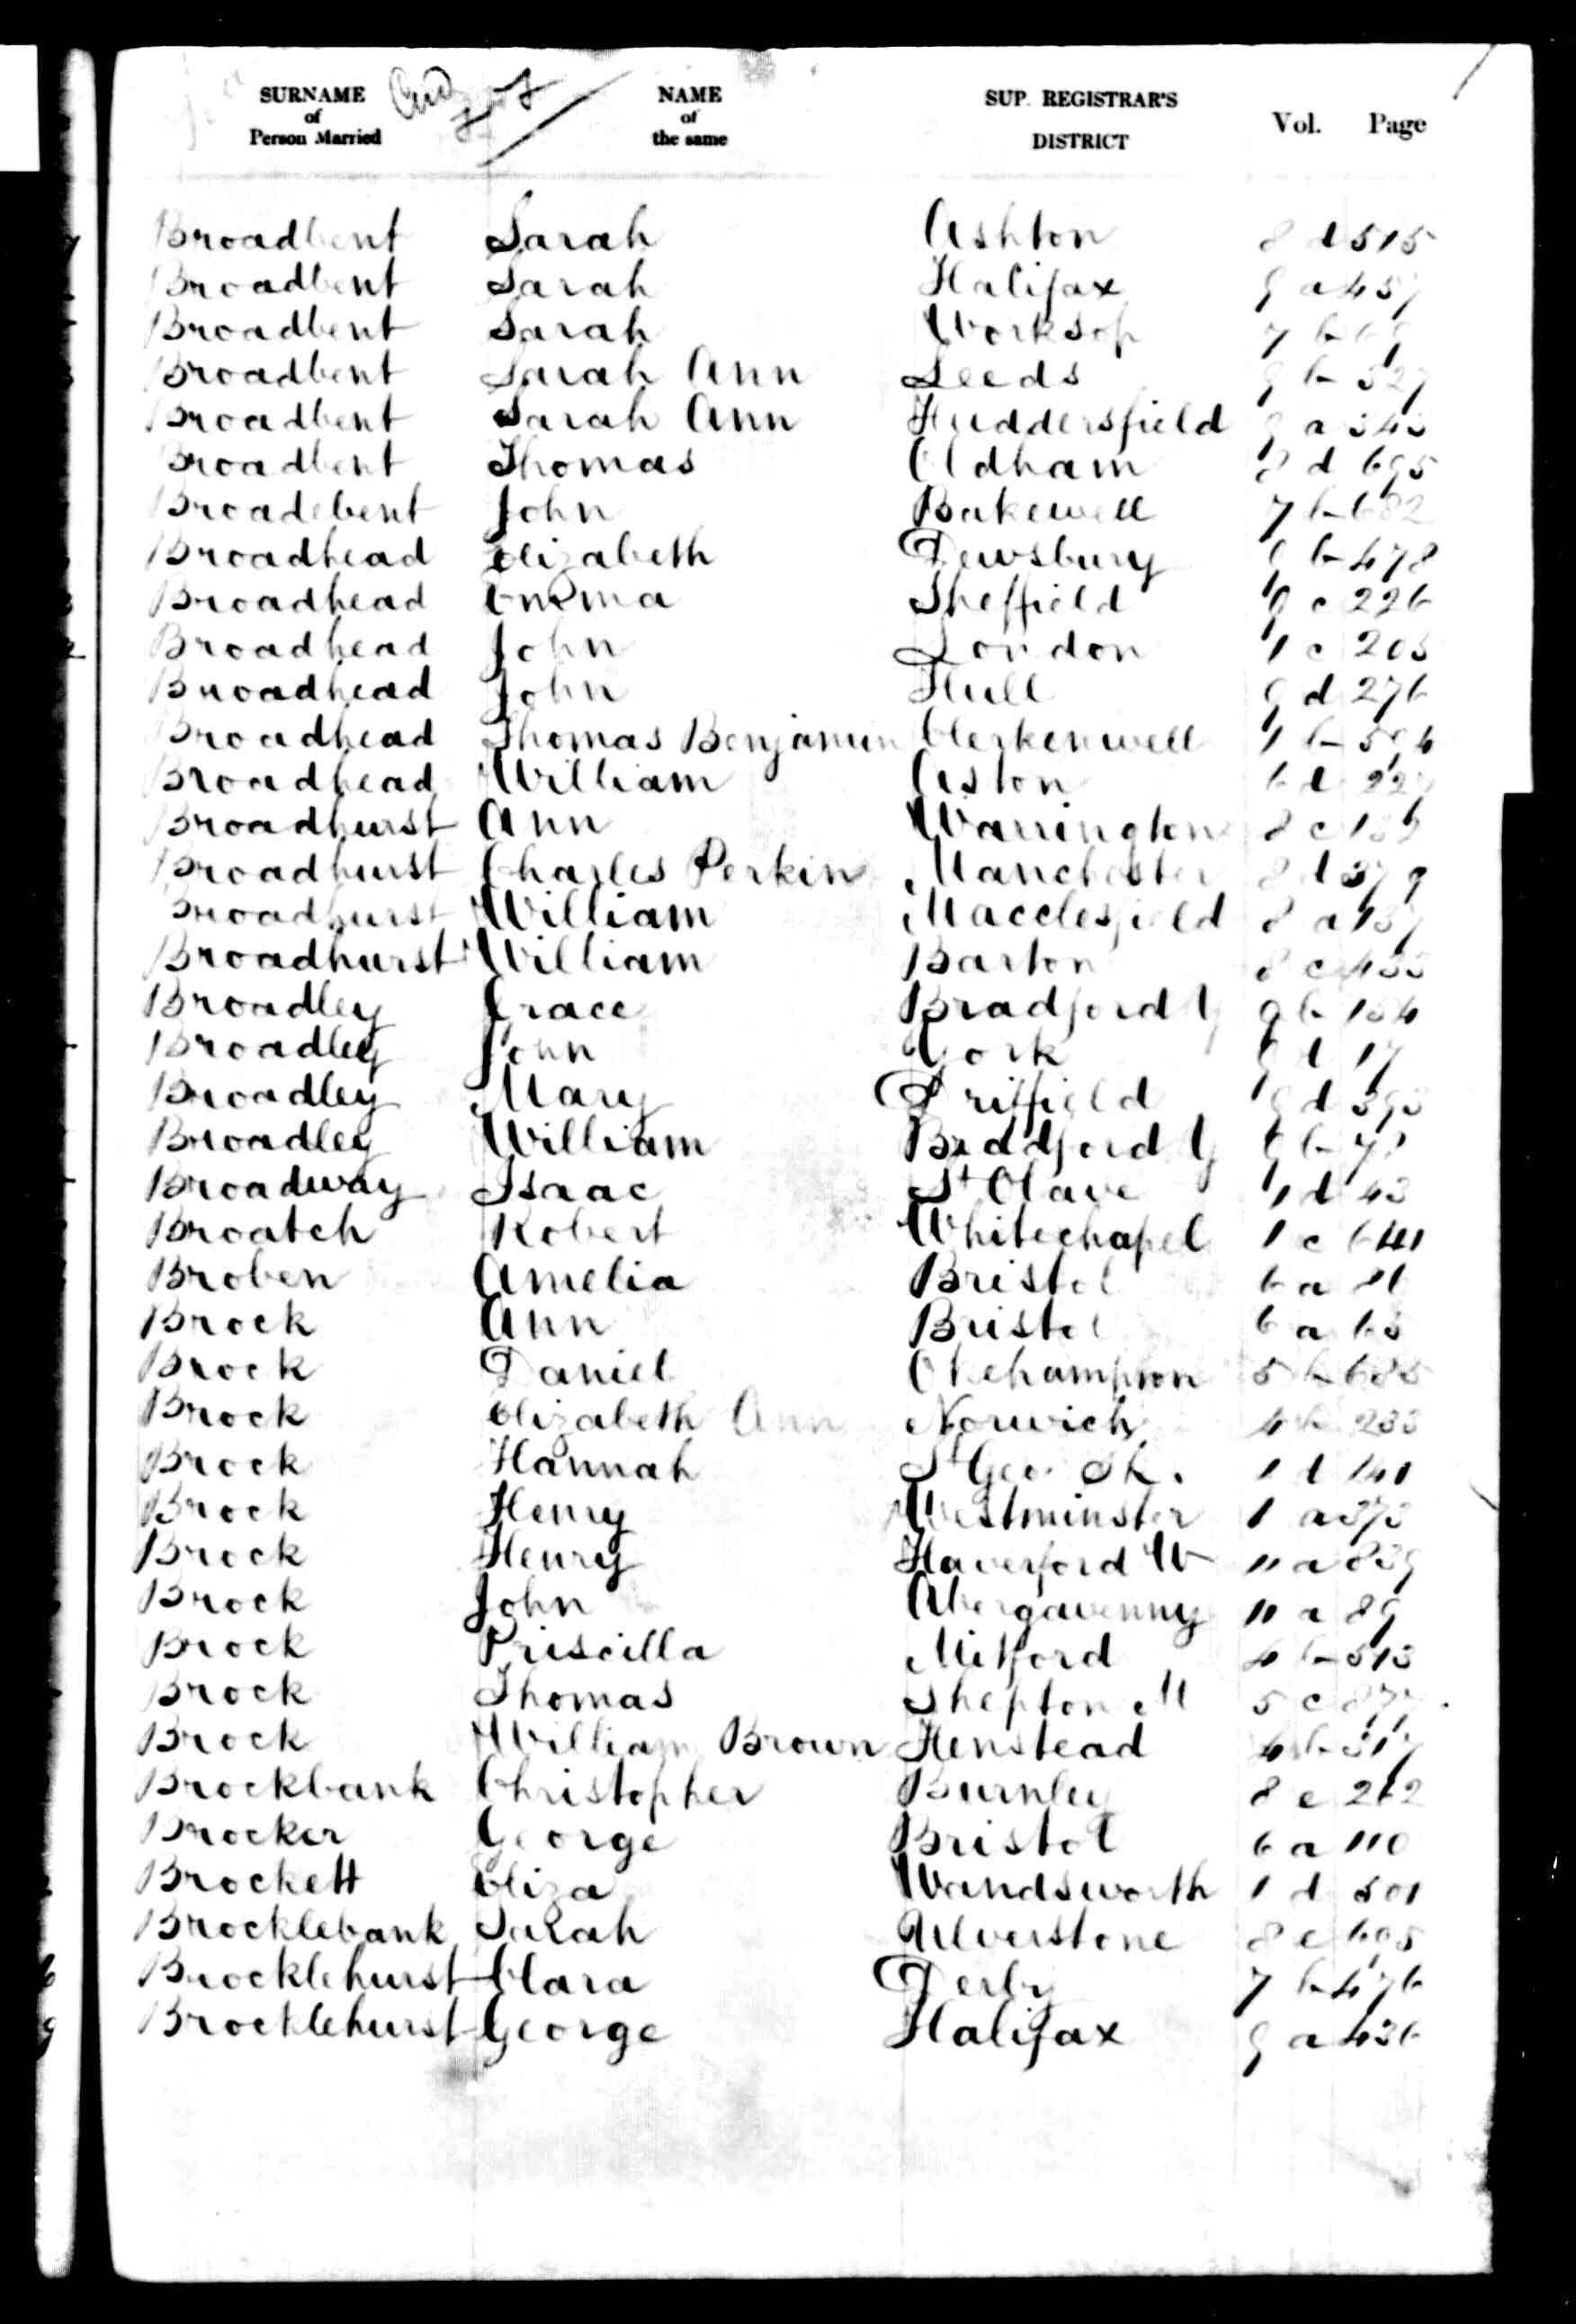 SURNAME of Person Married NAME of the same SUP. REGISTRAR'S DISTRICT Vol. Page
Broadbent Sarah Ashton 8 d 515
Broadbent Sarah Halifax 9 a 457
Broadbent Sarah Worksop 7 b
Broadbent Sarah Ann Leeds 9 b 527
Broadbent Sarah Ann Huddersfield 9 a 343
Broadbent Thomas Oldham 8 d 695
Broadebent John Bakewell 7 b 682
Broadhead Elizabeth Dewsbury 9 b 478
Broadhead Emma Sheffield 9 c 226
Broadhead John London 1 c 205
Broadhead John Hull 9 d 276
Broadhead Thomas Benjamin Clerkenwell 1 b
Broadhead William Aston 6 d 227
Broadhurst Ann Warrington 8 c
Broadhurst Charles Perkin Manchester 8 d 379
Broadhurst William Macclesfield 8 a 137
Broadhurst William Barton 8 c
Broadley Grace Bradford Y 9 b 154
Broadley John York 9 d 17
Broadley Mary Driffield 9 d
Broadley William Bradford Y 9 b
Broadway Isaac St Olave 1 d 43
Broatch Robert Whitechapel 1 c 641
Broben Amelia Bristol 6 a 86
Brock Ann Bristol 6 a 63
Brock Daniel Okehampton 5 b 685
Brock Elizabeth Ann Norwich 4 b 233
Brock Hannah St Geo. Sk. 1 d 141
Brock Henry Westminster 1 a 373
Brock Henry Haverford W 11 a 839
Brock John Abergavenny 11 a 89
Brock Priscilla Mitford 4 b 513
Brock Thomas Shepton M 5 c 877
Brock William Brown Henstead 4 b 317
Brockbank Christopher Burnley 8 e 262
Brocker George Bristol 6 a 110
Brockett Eliza Wandsworth 1 d 501
Brocklebank Sarah Ulverstone 8 e 605
Brocklehurst Clara Derby 7 b 476
Brocklehurst George Halifax 9 a 436